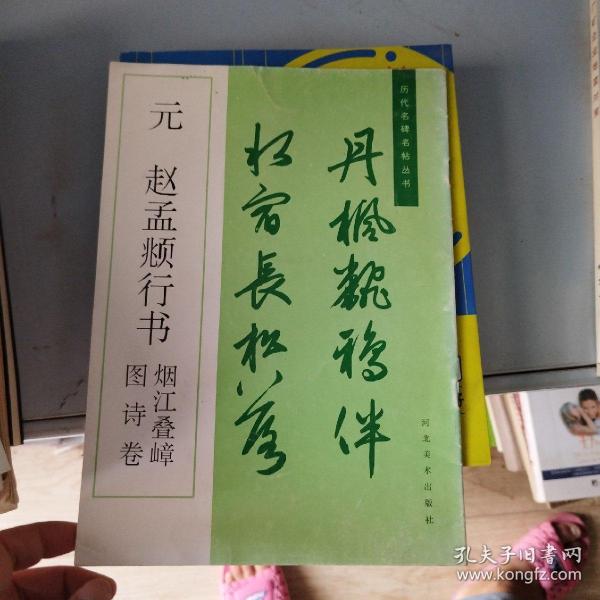 历代名碑名帖丛书
丹楓翻鴉伴
水宿長松落
河北美术出版社
元 赵孟𫖯行书
烟江叠嶂
图诗卷
孔夫子旧书网
www.kongfz.com